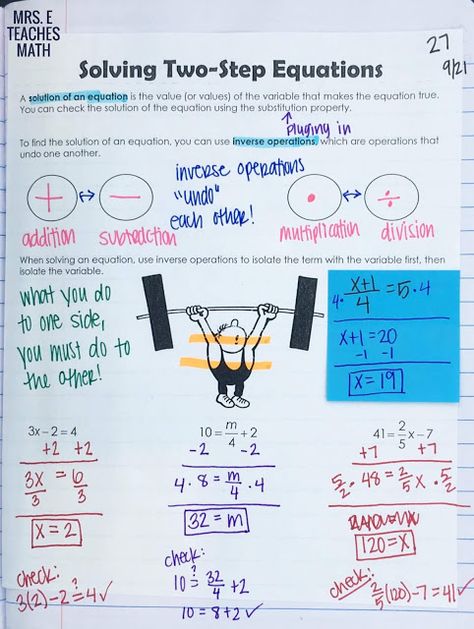 MRS. E
TEACHES
MATH
27
9/21
Solving Two-Step Equations
A solution of an equation is the value (or values) of the variable that makes the equation true.
You can check the solution of the equation using the substitution property.
↑
Pluging in
To find the solution of an equation, you can use inverse operations, which are operations that
undo one another.
inverse operations
"undo"
each other!
+ ↔ −
addition subtraction
• ↔ ÷
multiplication division
When solving an equation, use inverse operations to isolate the term with the variable first, then
isolate the variable.
what you do
to one side,
you must do to
the other!
4 · x+1/4 = 5 · 4
x+1 = 20
-1 -1
x = 19
3x − 2 = 4
+2 +2
3x/3 = 6/3
x = 2
check:
3(2) − 2 ≟ 4 ✓
10 = m/4 + 2
-2 -2
4 · 8 = m/4 · 4
32 = m
check:
10 ≟ 32/4 + 2
10 = 8 + 2 ✓
41 = 2/5 x − 7
+7 +7
5/2 · 48 = 2/5 x · 5/2
120 = x
check: 2/5(120) − 7 = 41 ✓